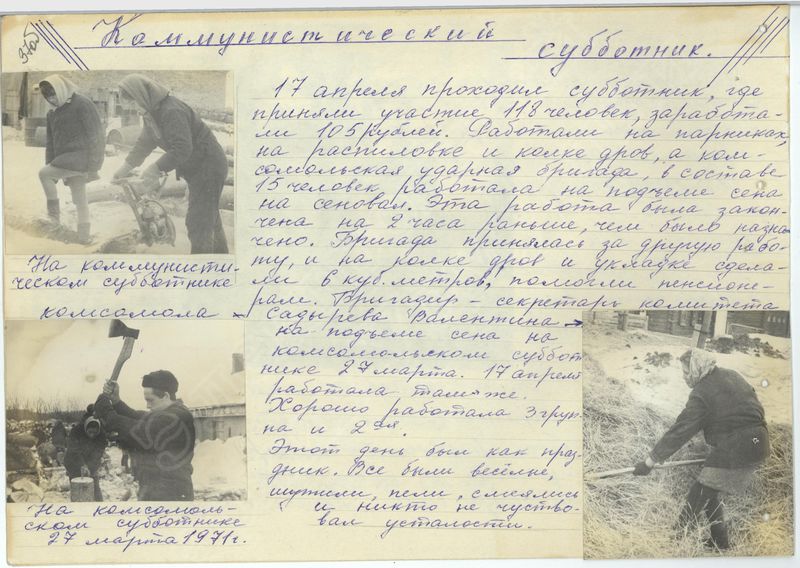 37об
Коммунистический
субботник.
17 апреля проходил субботник, где
приняли участие 118 человек, заработа-
ли 105 рублей. Работали на парниках,
на распиловке и колке дров, а ком-
сомольская ударная бригада, в составе
15 человек работала на подъеме сена
на сеновал. Эта работа была закон-
чена на 2 часа раньше, чем было назна
чено. Бригада принялась за другую рабо-
ту, и на колке дров и укладке сдела-
ли 6 куб. метров, помогли пенсионе-
рам. Бригадир - секретарь комитета
комсомола - Садырева Валентина →
на подъеме сена на
комсомольском суббот
нике 27 марта. 17 апреля
работала там же.
Хорошо работала 3 груп-
па и 2ая.
Этот день был как праз-
дник. Все были весёлые,
шутили, пели, смеялись
и никто не чувство-
вал усталости.
На коммунисти-
ческом субботнике
На комсомоль-
ском субботнике
27 марта 1971г.